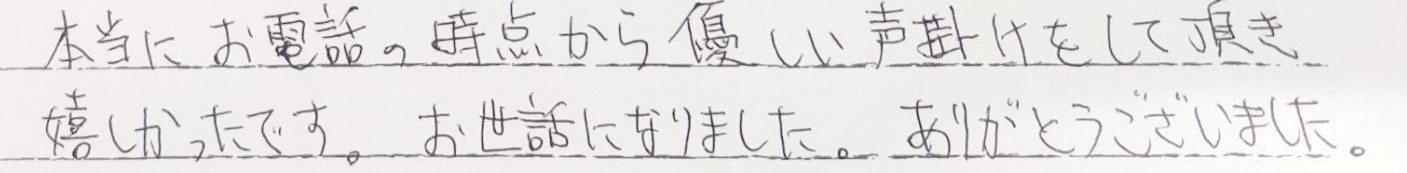 本当にお電話の時点から優しい声掛けをして頂き
嬉しかったです。お世話になりました。ありがとうございました。